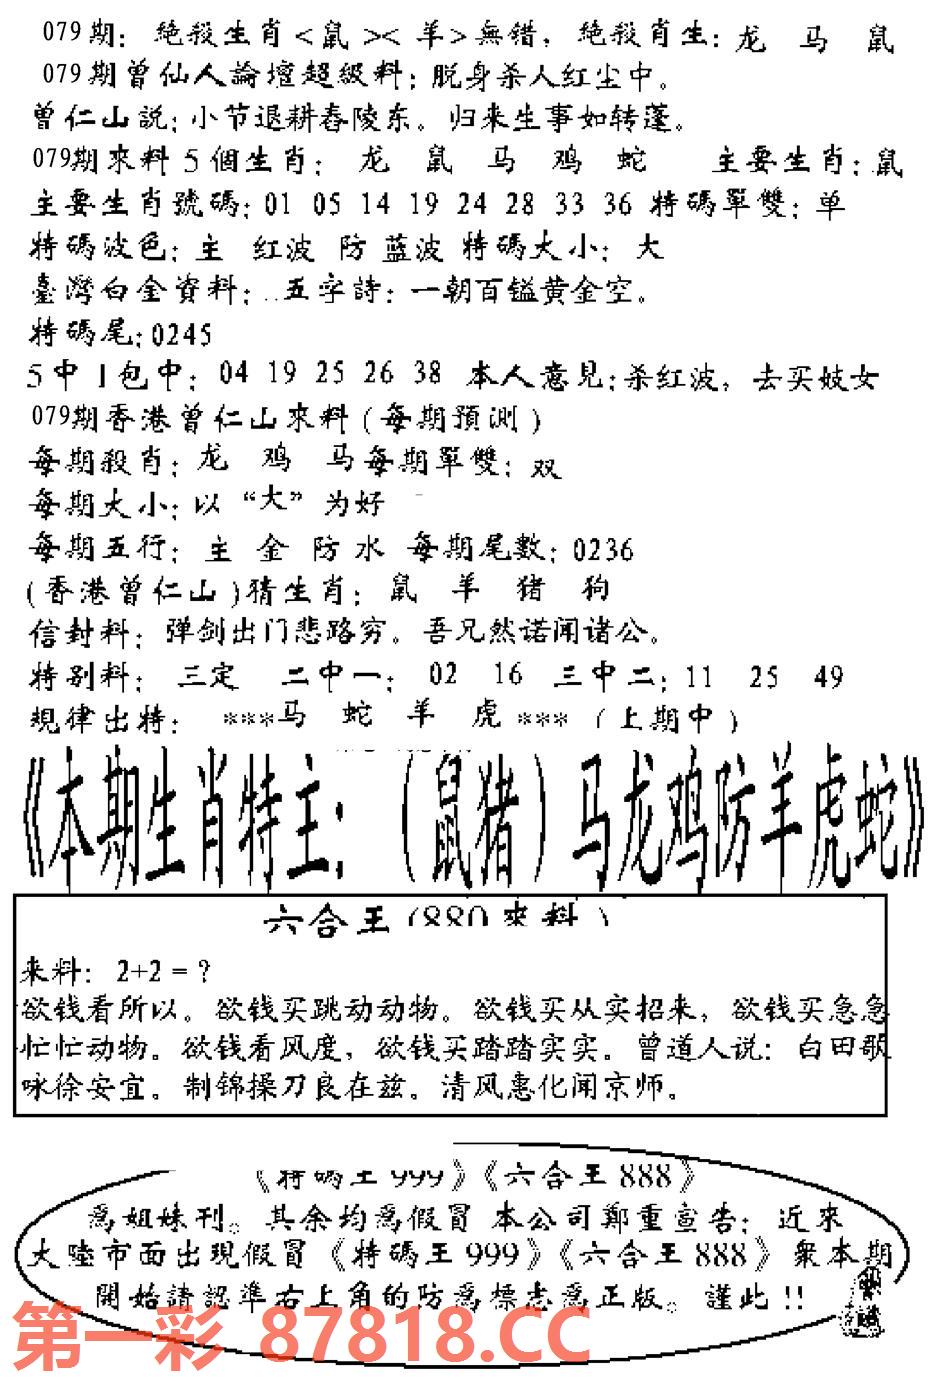 079期：絶殺生肖<鼠><羊>無錯，絶殺肖生：龙 马 鼠
079期曾仙人論壇超級料：脱身杀人红尘中。
曾仁山説：小节退耕春陵东。归来生事如转蓬。
079期來料5個生肖：龙 鼠 马 鸡 蛇 主要生肖：鼠
主要生肖號碼：01 05 14 19 24 28 33 36 特碼單雙：单
特碼波色：主 红波 防 蓝波 特碼大小：大
臺灣白金資料：..五字詩：一朝百镒黄金空。
特碼尾：0245
5中1包中：04 19 25 26 38 本人意見：杀红波，去买妓女
079期香港曾仁山來料(每期預測)
每期殺肖：龙 鸡 马 每期單雙：双
每期大小：以“大”为好
每期五行：主 金 防 水 每期尾數：0236
(香港曾仁山)猜生肖：鼠 羊 猪 狗
信封料：弹剑出门悲路穷。吾兄然诺闻诸公。
特别料：三定 二中一：02 16 三中二：11 25 49
規律出特：***马 蛇 羊 虎***（上期中）
《本期生肖特主：（鼠猪）马龙鸡防羊虎蛇》
六合王(880來料)
来料：2+2=？
欲钱看所以。欲钱买跳动动物。欲钱买从实招来，欲钱买急急
忙忙动物。欲钱看风度，欲钱买踏踏实实。曾道人说：白田歌
咏徐安宜。制锦操刀良在兹。清风惠化闻京师。
《特碼王999》《六合王888》
爲姐妹刊。其余均爲假冒 本公司鄭重宣告：近來
大陸市面出現假冒《特碼王999》《六合王888》衆本期
開始請認準右上角的防爲標志爲正版。謹此!!
第一彩 87818.CC